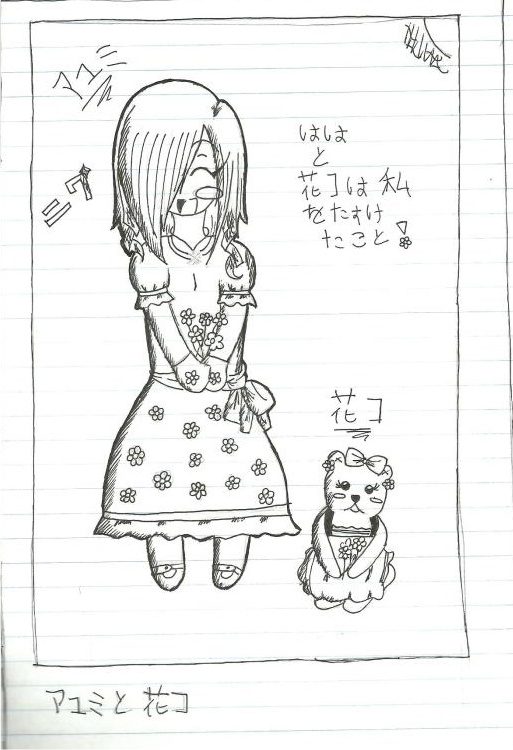 アユミ
はは
と
花コは私
をたすけ
たこと!
花コ
アユミと花コ